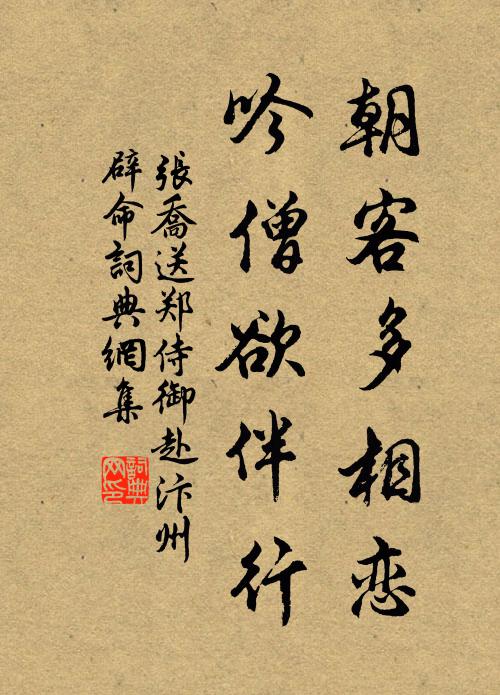 朝客多相恋
吟僧欲伴行
張喬送郑侍御赴汴州
辟命詞典網集
詞典
网印